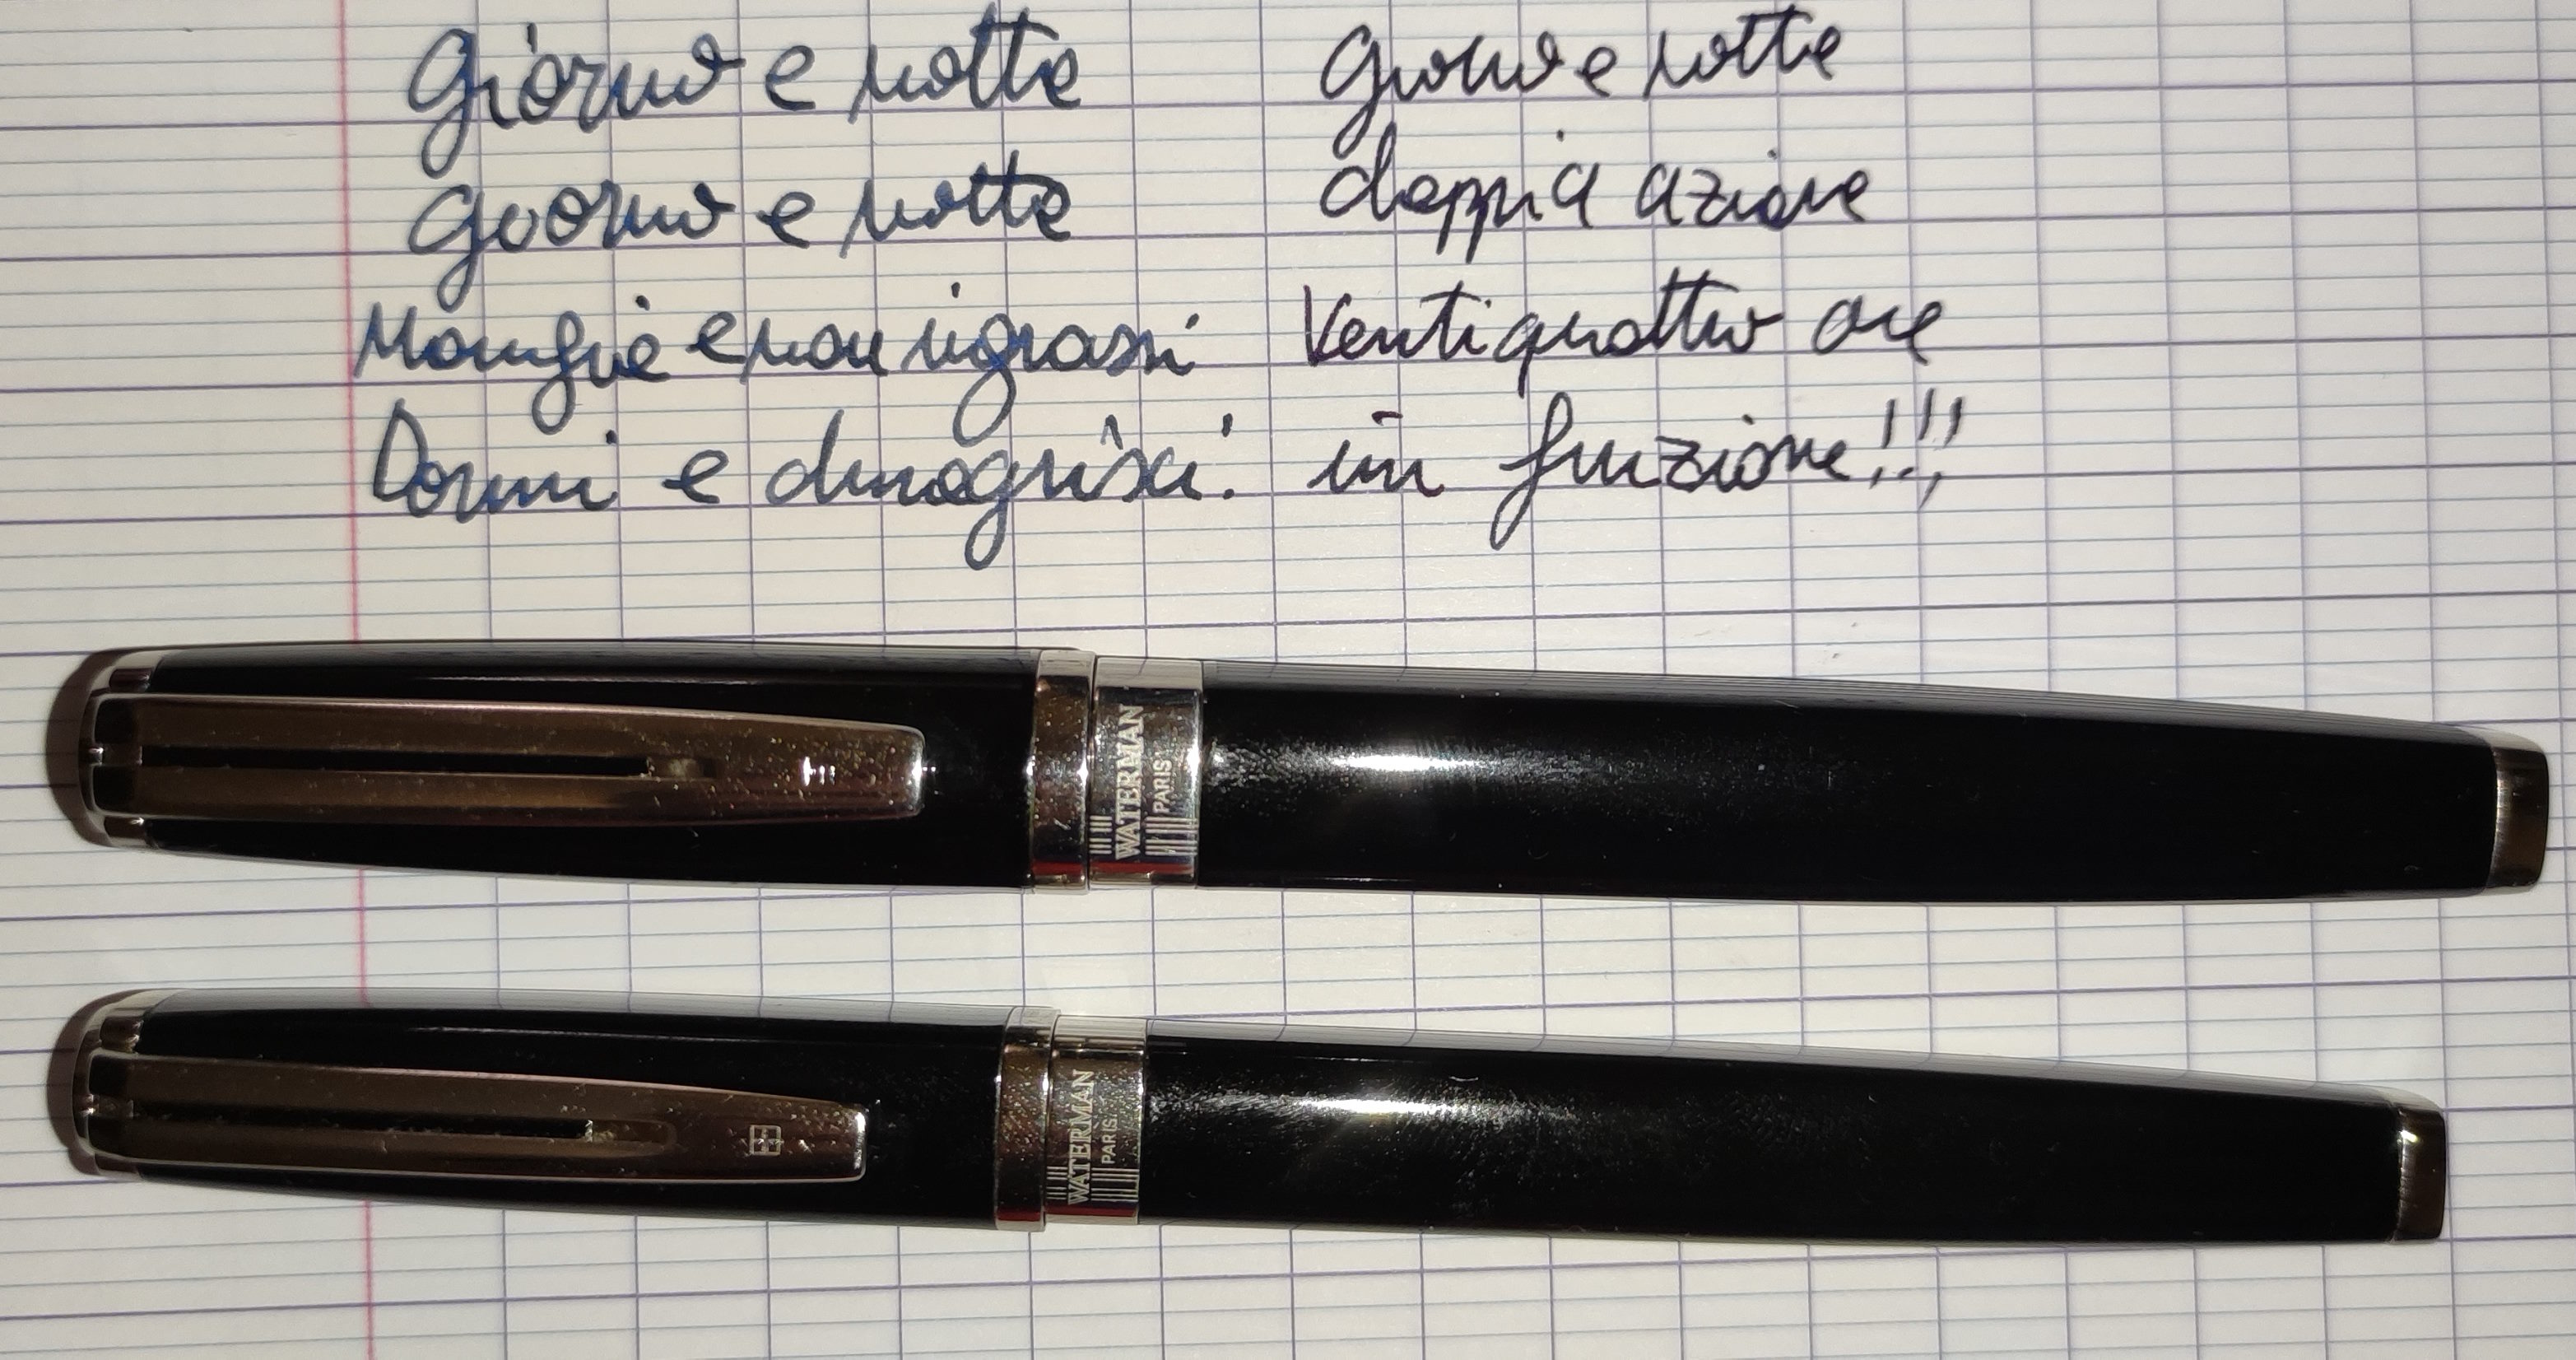 Giorno e notte
Giorno e notte
Mangi e non ingrassi
Dormi e dimagrisci!
Giorno e notte
doppia azione
Ventiquattro ore
in funzione!!!
WATERMAN
PARIS
WATERMAN
PARIS